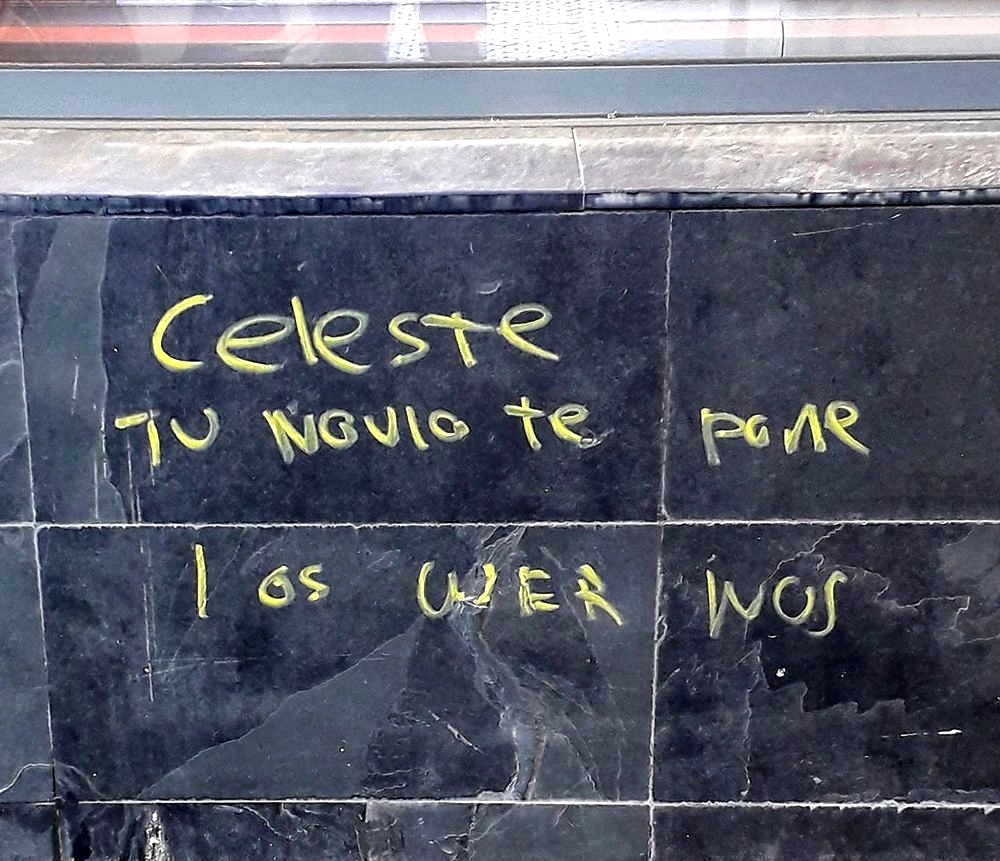 Celeste
TU NOVIO te pone
los CUER NOS